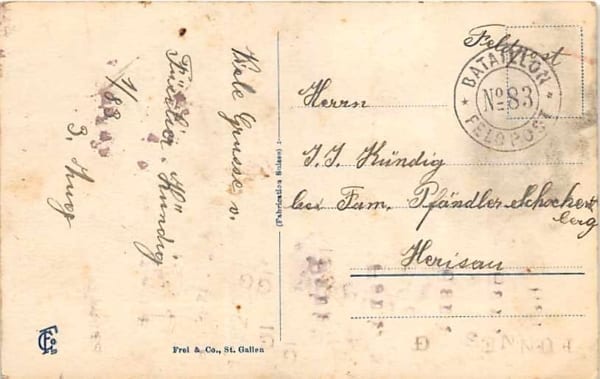 Viele Grüsse v.
Füsilier. Kündig
1/83
3. Zug
(Fabrication Suisse)
Feldpost
BATAILLON
No 83
FELDPOST
Herrn
J. J. Kündig
bei Fam. Pfändler-Schochen
berg
Herisau
Frei & Co., St. Gallen